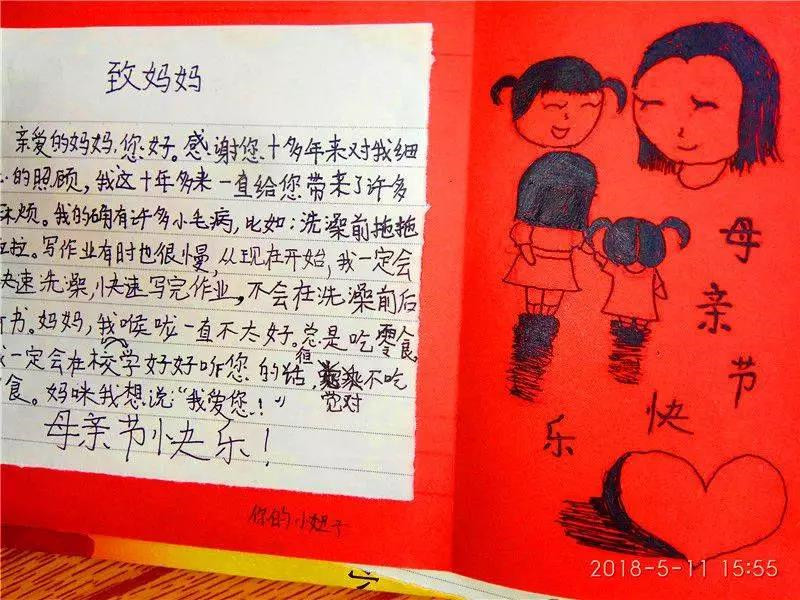 致妈妈
亲爱的妈妈,您好。感谢您十多年来对我细
的照顾,我这十年多来一直给您带来了许多
麻烦。我的确有许多小毛病,比如:洗澡前拖拖
拉拉。写作业有时也很慢,从现在开始,我一定会
快速洗澡,快速写完作业。不会在洗澡前后
书。妈妈,我喉咙一直不太好。总是吃零食
我一定会在学校好好听您的话,绝对不吃
食。妈咪我想说“我爱您!”
母亲节快乐!
你的小妞子
母亲节快乐
2018-5-11 15:55